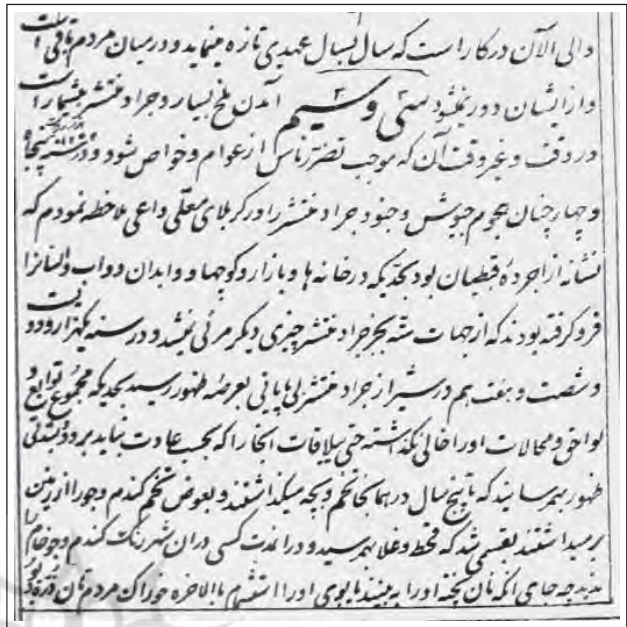 والی الآن در کار است که سال بسال عهدی تازه مینماید و در میان مردم باقی است
و از ایشان دور نمیشود سی و سیم آمدن ملخ بسیار و جراد منتشر بیشمار است
در وقت و غیر وقت آن که موجب تضرر ناس از عوام و خواص بشود و در سنه پنجاه
و چهار چنان هجوم جیوش و جنود جراد منتشر را در کربلای معلی داعی ملاحظه نمودم که
نشانه از اجرده قبطیان بود بحدیکه در خانه ها و بازار و کوچها و ابدان دواب و انسانرا
فرو گرفته بودند که از جهات سته بجز جراد منتشر چیزی دیگر مرئی نمیشد و در سنه یکهزار و دویست
و شصت و هفت هم در شیراز جراد منتشر بی پایانی بعرصه ظهور رسید بحدیکه مجموع توابع و
لواحق و محالات او را خالی نگذاشته حتی ییلاقات آنجا را که بحسب عادت نیاید برود بشدتی
ظهور بهمرسانید که تا پنج سال در همانجا تخم و بچه میگذاشتند و بعوض تخم گندم و جو را از زمین
برمیداشتند بقسمی شد که قحط و غلا بهم رسید و در آن مدت کسی در آن شهر رنگ گندم و جو خام را
ندید چه جای آنکه نان پخته او را به بیند یا بوی او را استشمام بالاخره خوراک مردم نان ذرة بود